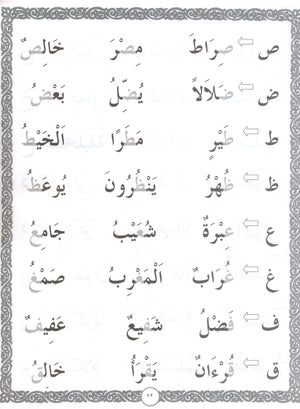 ص ⇦ صِرَاطَ مِصْرَ خَالِصٌ
ض ⇦ ضَلَالاً يُضِلُّ بَعْضُ
ط ⇦ طَيْرٍ مَطَرًا الْخَيْطُ
ظ ⇦ ظُهْرُ يَنْظُرُونَ يُوعَظُ
ع ⇦ عِبْرَةٌ شُعَيْبُ جَامِعُ
غ ⇦ غُرَابٌ الْمَغْرِبُ صَمْغُ
ف ⇦ فَضْلُ شَفِيعٌ عَفِيفٌ
ق ⇦ قُرْءَانٌ يَقْرَأُ خَالِقُ
١٢